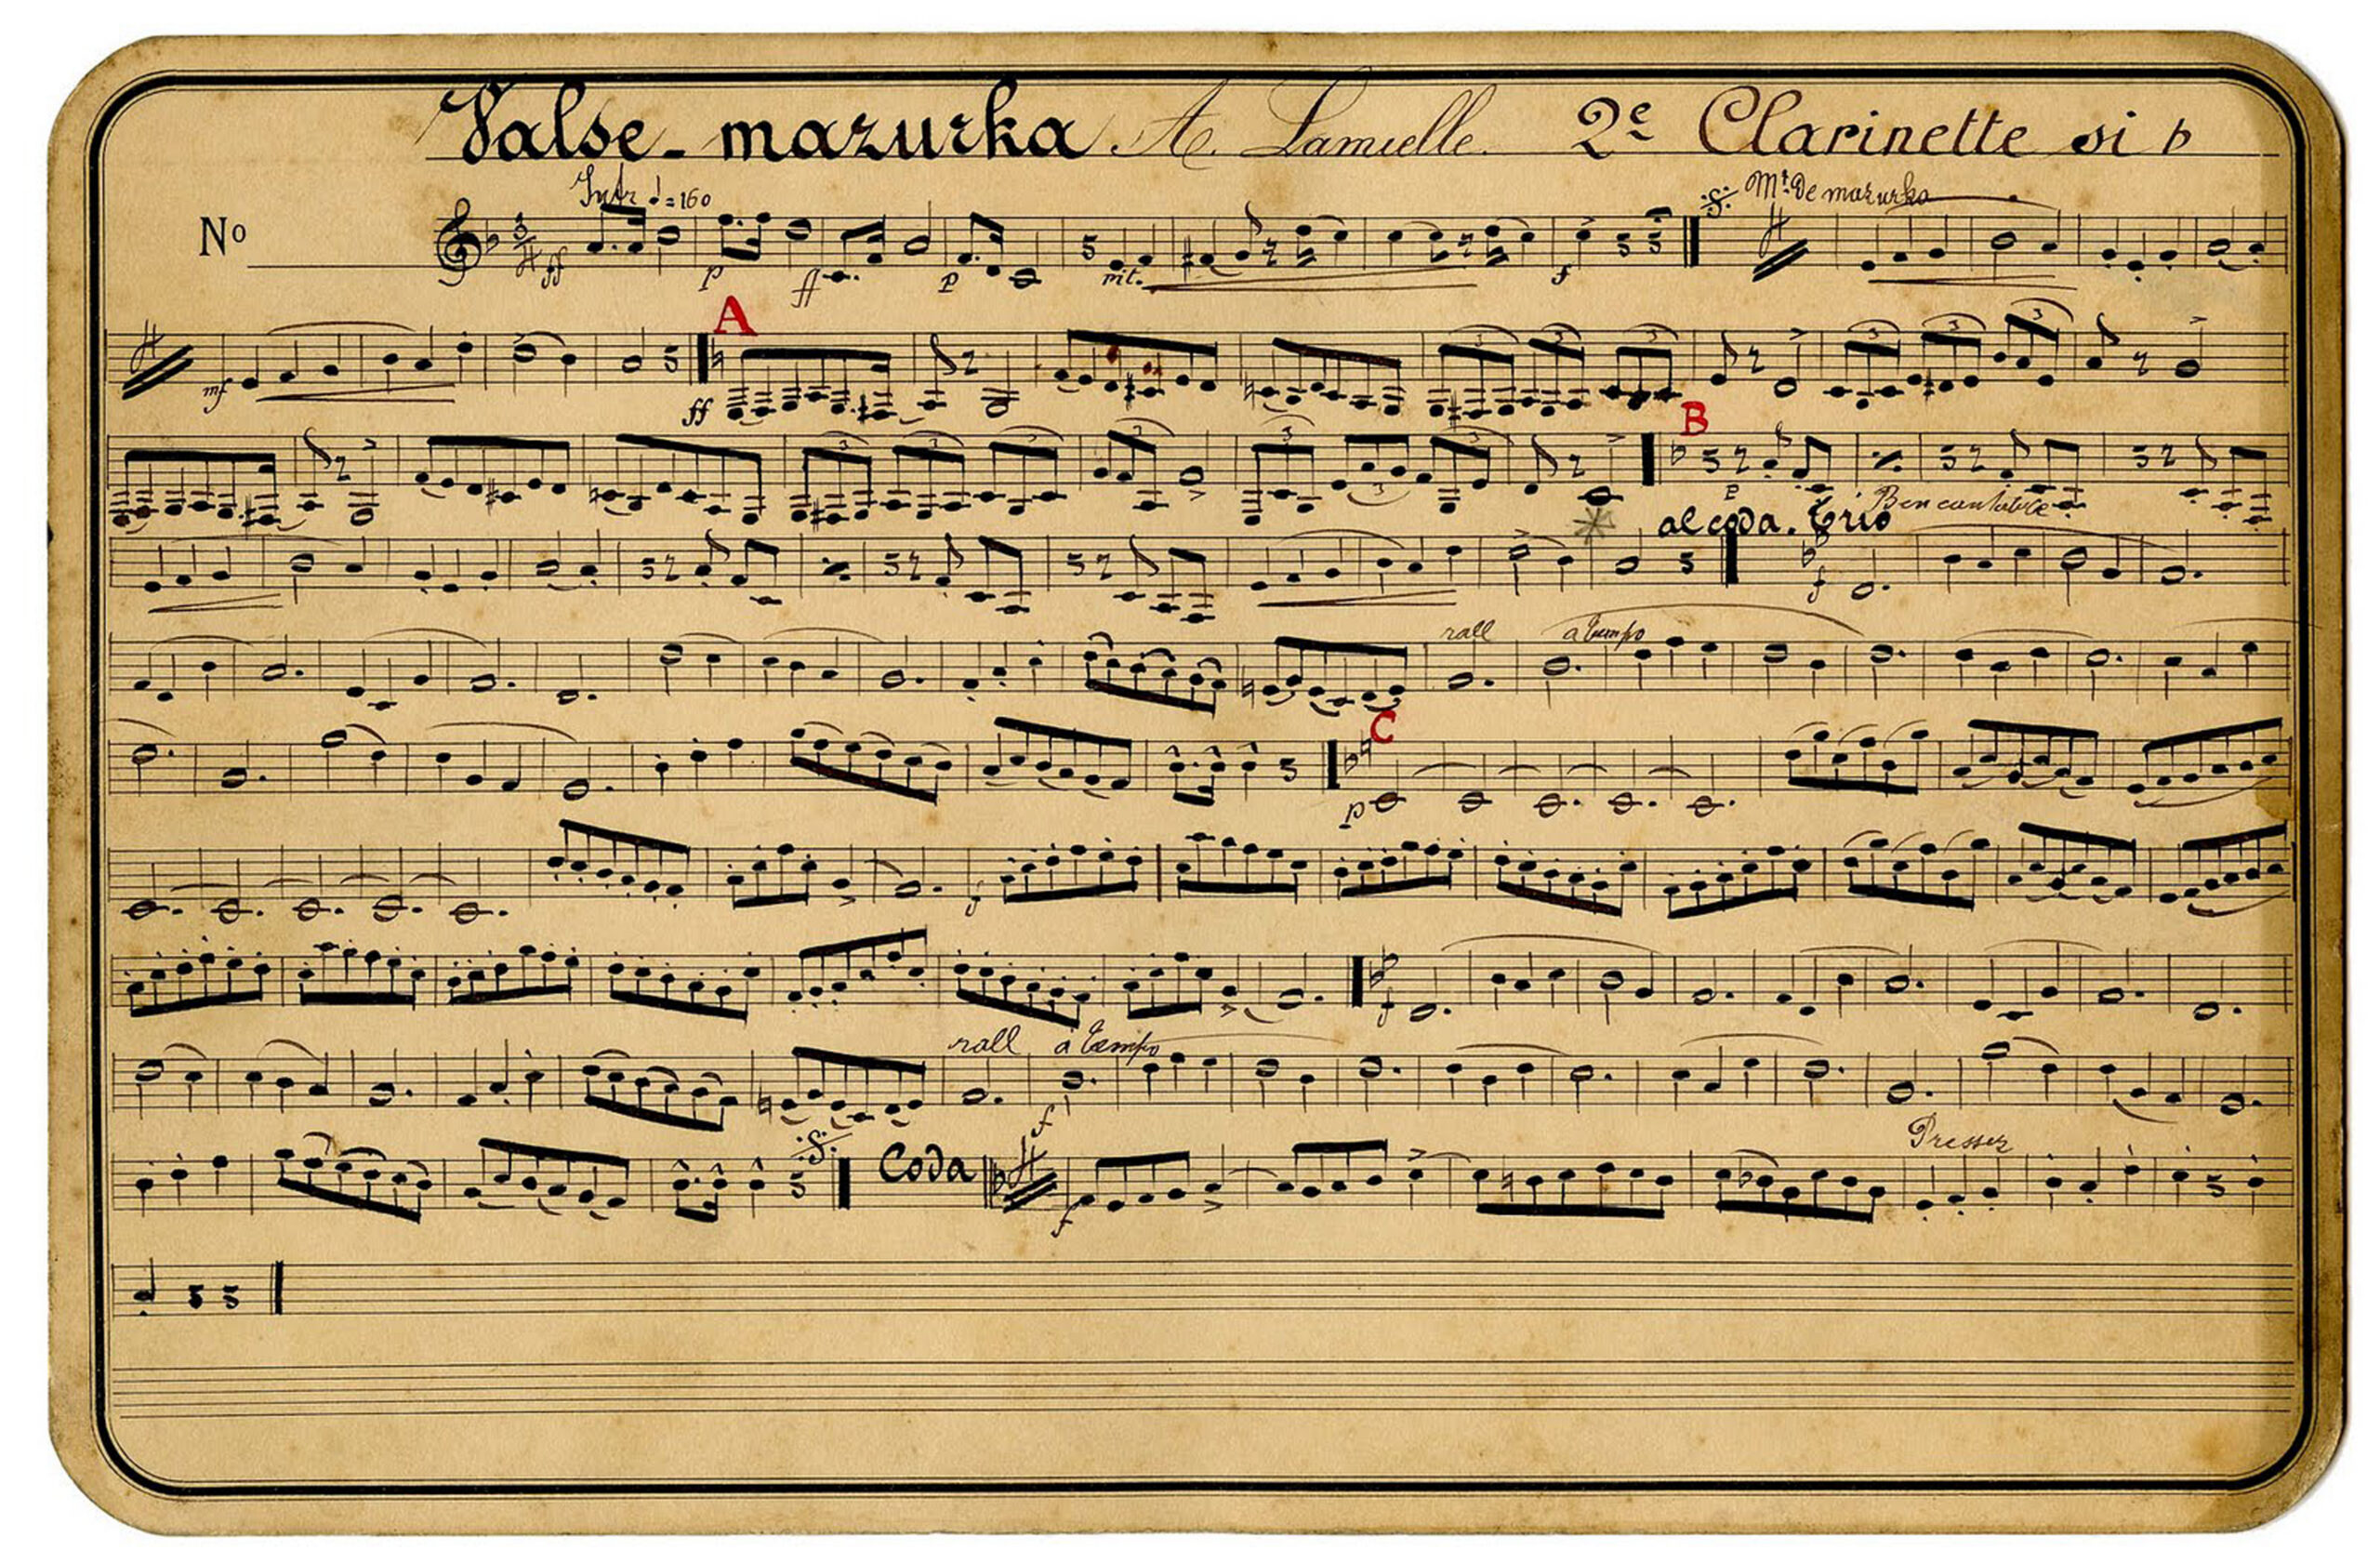 Valse - mazurka A. Lamielle. 2e Clarinette si b
No
Intr ♩ = 160
Mt. De mazurka
ff p ff p rit. f
A
mf ff
B
p
al coda. Trio Ben cantabile
f
rall a tempo
C
p
f
f
rall a tempo
f
Coda
Pressez
f